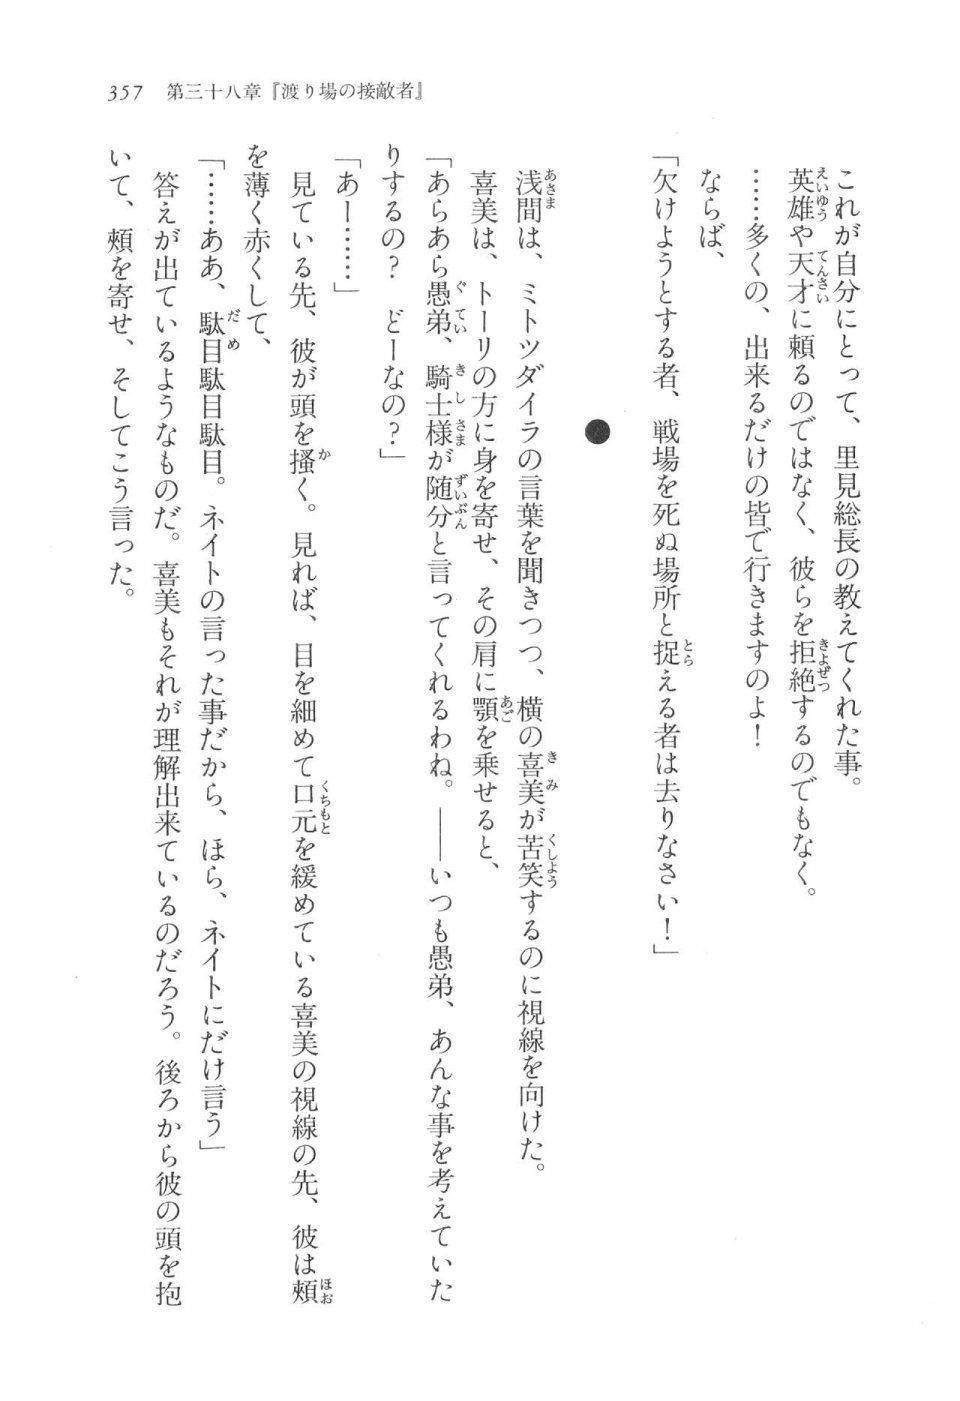 357　第三十八章『渡り場の接敵者』
これが自分にとって、里見総長の教えてくれた事。
英雄や天才に頼るのではなく、彼らを拒絶するのでもなく。
……多くの、出来るだけの皆で行きますのよ！
ならば、
「欠けようとする者、戦場を死ぬ場所と捉える者は去りなさい！」
●
浅間は、ミトツダイラの言葉を聞きつつ、横の喜美が苦笑するのに視線を向けた。
喜美は、トーリの方に身を寄せ、その肩に顎を乗せると、
「あらあら愚弟、騎士様が随分と言ってくれるわね。――いつも愚弟、あんな事を考えていた
りするの？　どーなの？」
「あー……」
見ている先、彼が頭を掻く。見れば、目を細めて口元を緩めている喜美の視線の先、彼は頬
を薄く赤くして、
「……ああ、駄目駄目駄目。ネイトの言った事だから、ほら、ネイトにだけ言う」
答えが出ているようなものだ。喜美もそれが理解出来ているのだろう。後ろから彼の頭を抱
いて、頬を寄せ、そしてこう言った。